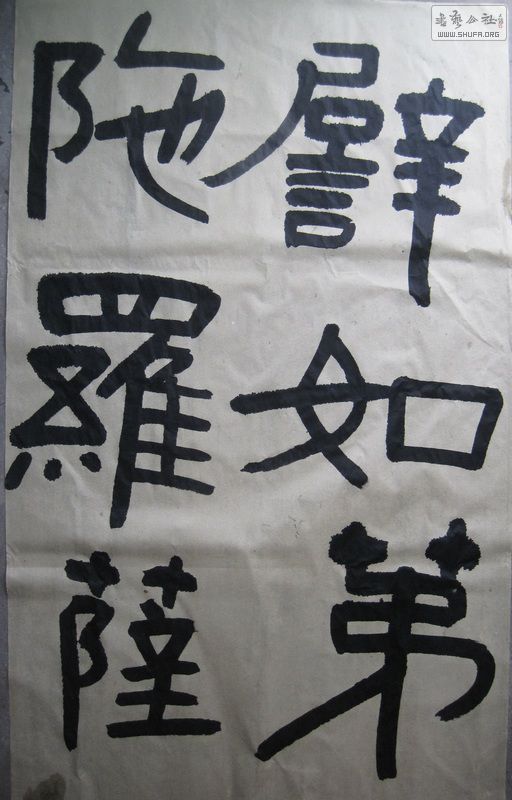 書藝公社
WWW.SHUFA.ORG
譬如苐
陁羅薩